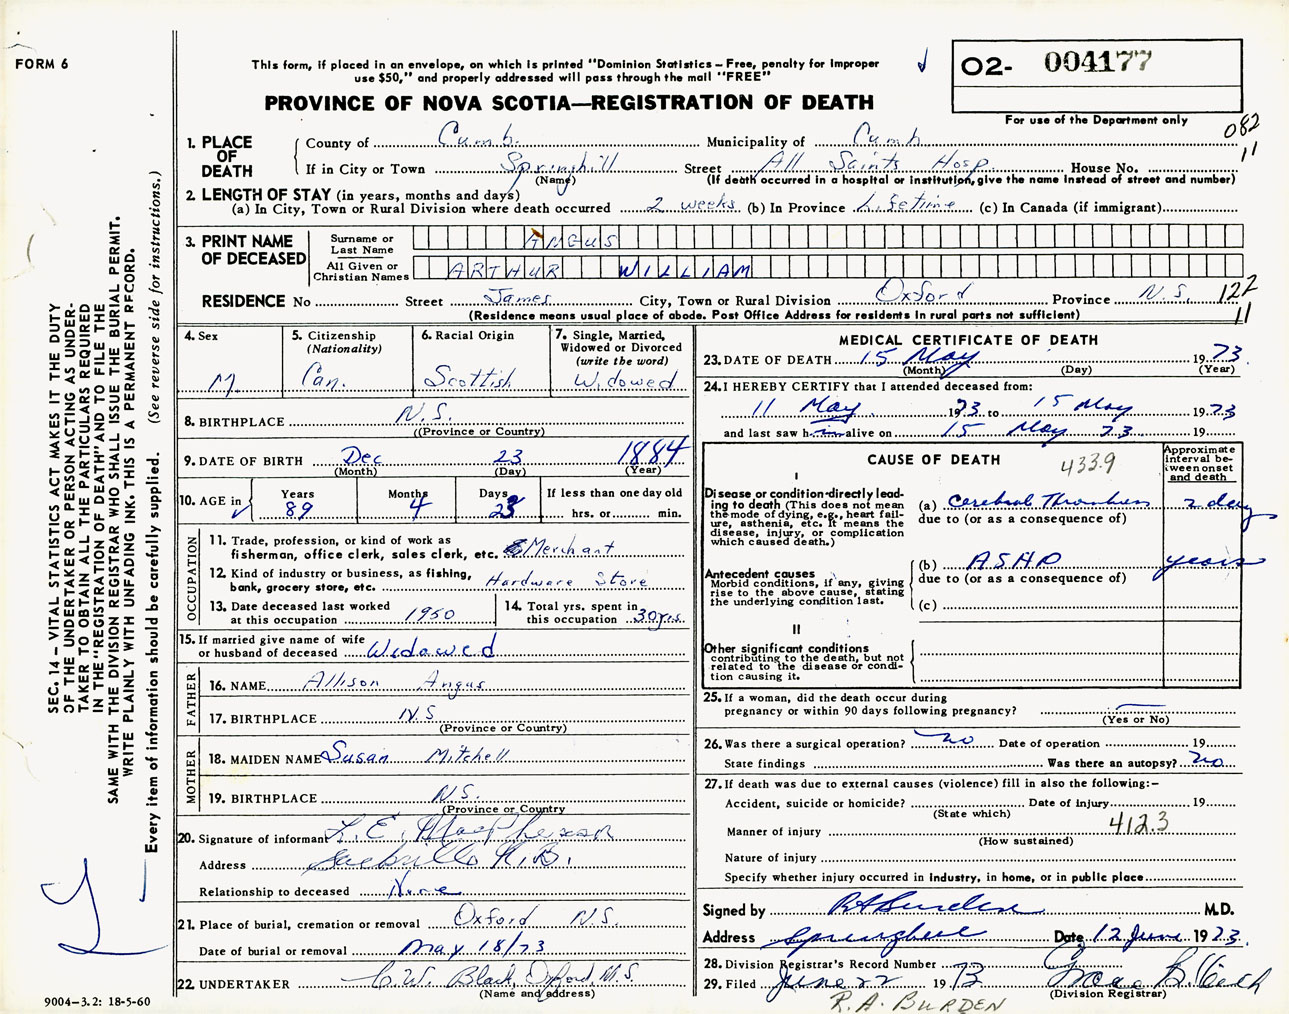 FORM 6
This form, if placed in an envelope, on which is printed "Dominion Statistics – Free, penalty for improper
use $50," and properly addressed will pass through the mail "FREE"
O2- 004177
PROVINCE OF NOVA SCOTIA—REGISTRATION OF DEATH
For use of the Department only
082
11
1. PLACE OF DEATH
County of Cumb. Municipality of Cumb
If in City or Town Springhill Street All Saints Hosp. House No.
(Name) (If death occurred in a hospital or institution, give the name instead of street and number)
2. LENGTH OF STAY (in years, months and days)
(a) In City, Town or Rural Division where death occurred 2 weeks (b) In Province Lifetime (c) In Canada (if immigrant)
3. PRINT NAME OF DECEASED
Surname or Last Name ANGUS
All Given or Christian Names ARTHUR WILLIAM
RESIDENCE No Street James City, Town or Rural Division Oxford Province N.S. 122
11
(Residence means usual place of abode. Post Office Address for residents in rural parts not sufficient)
4. Sex
M.
5. Citizenship
(Nationality)
Can.
6. Racial Origin
Scottish
7. Single, Married,
Widowed or Divorced
(write the word)
Widowed
8. BIRTHPLACE N.S.
(Province or Country)
9. DATE OF BIRTH Dec 23 1884
(Month) (Day) (Year)
10. AGE in Years Months Days If less than one day old
89 4 23 hrs. or min.
OCCUPATION
11. Trade, profession, or kind of work as
fisherman, office clerk, sales clerk, etc. Merchant
12. Kind of industry or business, as fishing,
bank, grocery store, etc. Hardware Store
13. Date deceased last worked
at this occupation 1950
14. Total yrs. spent in
this occupation 30 yrs.
15. If married give name of wife
or husband of deceased Widowed
FATHER
16. NAME Allison Angus
17. BIRTHPLACE N.S
(Province or Country)
MOTHER
18. MAIDEN NAME Susan Mitchell
19. BIRTHPLACE N.S.
(Province or Country
20. Signature of informant L. E. MacPherson
Address Sackville N.B.
Relationship to deceased None
21. Place of burial, cremation or removal Oxford N.S.
Date of burial or removal May 18/73
22. UNDERTAKER C.W. Black, Oxford, N.S.
(Name and address)
MEDICAL CERTIFICATE OF DEATH
23. DATE OF DEATH 15 May 1973
(Month) (Day) (Year)
24. I HEREBY CERTIFY that I attended deceased from:
11 May 1973 to 15 May 1973
and last saw h im alive on 15 May 73 19
CAUSE OF DEATH 433.9
Approximate
interval be-
tween onset
and death
I
Disease or condition directly lead-
ing to death (This does not mean
the mode of dying, e.g., heart fail-
ure, asthenia, etc. It means the
disease, injury, or complication
which caused death.)
(a) Cerebral Thrombosis 2 days
due to (or as a consequence of)
Antecedent causes
Morbid conditions, if any, giving
rise to the above cause, stating
the underlying condition last.
(b) ASHD years
due to (or as a consequence of)
(c)
II
Other significant conditions
contributing to the death, but not
related to the disease or condi-
tion causing it.
25. If a woman, did the death occur during
pregnancy or within 90 days following pregnancy?
(Yes or No)
26. Was there a surgical operation? no Date of operation 19
State findings Was there an autopsy? no
27. If death was due to external causes (violence) fill in also the following:–
Accident, suicide or homicide? Date of injury 19
(State which)
Manner of injury 412.3
(How sustained)
Nature of injury
Specify whether injury occurred in industry, in home, or in public place
Signed by RA Burden M.D.
Address Springhill Date 12 June 1973
28. Division Registrar's Record Number
29. Filed June 22 1973
(Division Registrar)
R.A. BURDEN
SEC. 14 – VITAL STATISTICS ACT MAKES IT THE DUTY
OF THE UNDERTAKER OR PERSON ACTING AS UNDER-
TAKER TO OBTAIN ALL THE PARTICULARS REQUIRED
IN THE "REGISTRATION OF DEATH" AND TO FILE THE
SAME WITH THE DIVISION REGISTRAR WHO SHALL ISSUE THE BURIAL PERMIT.
WRITE PLAINLY WITH UNFADING INK. THIS IS A PERMANENT RECORD.
Every item of information should be carefully supplied. (See reverse side for instructions.)
9004–3.2: 18-5-60